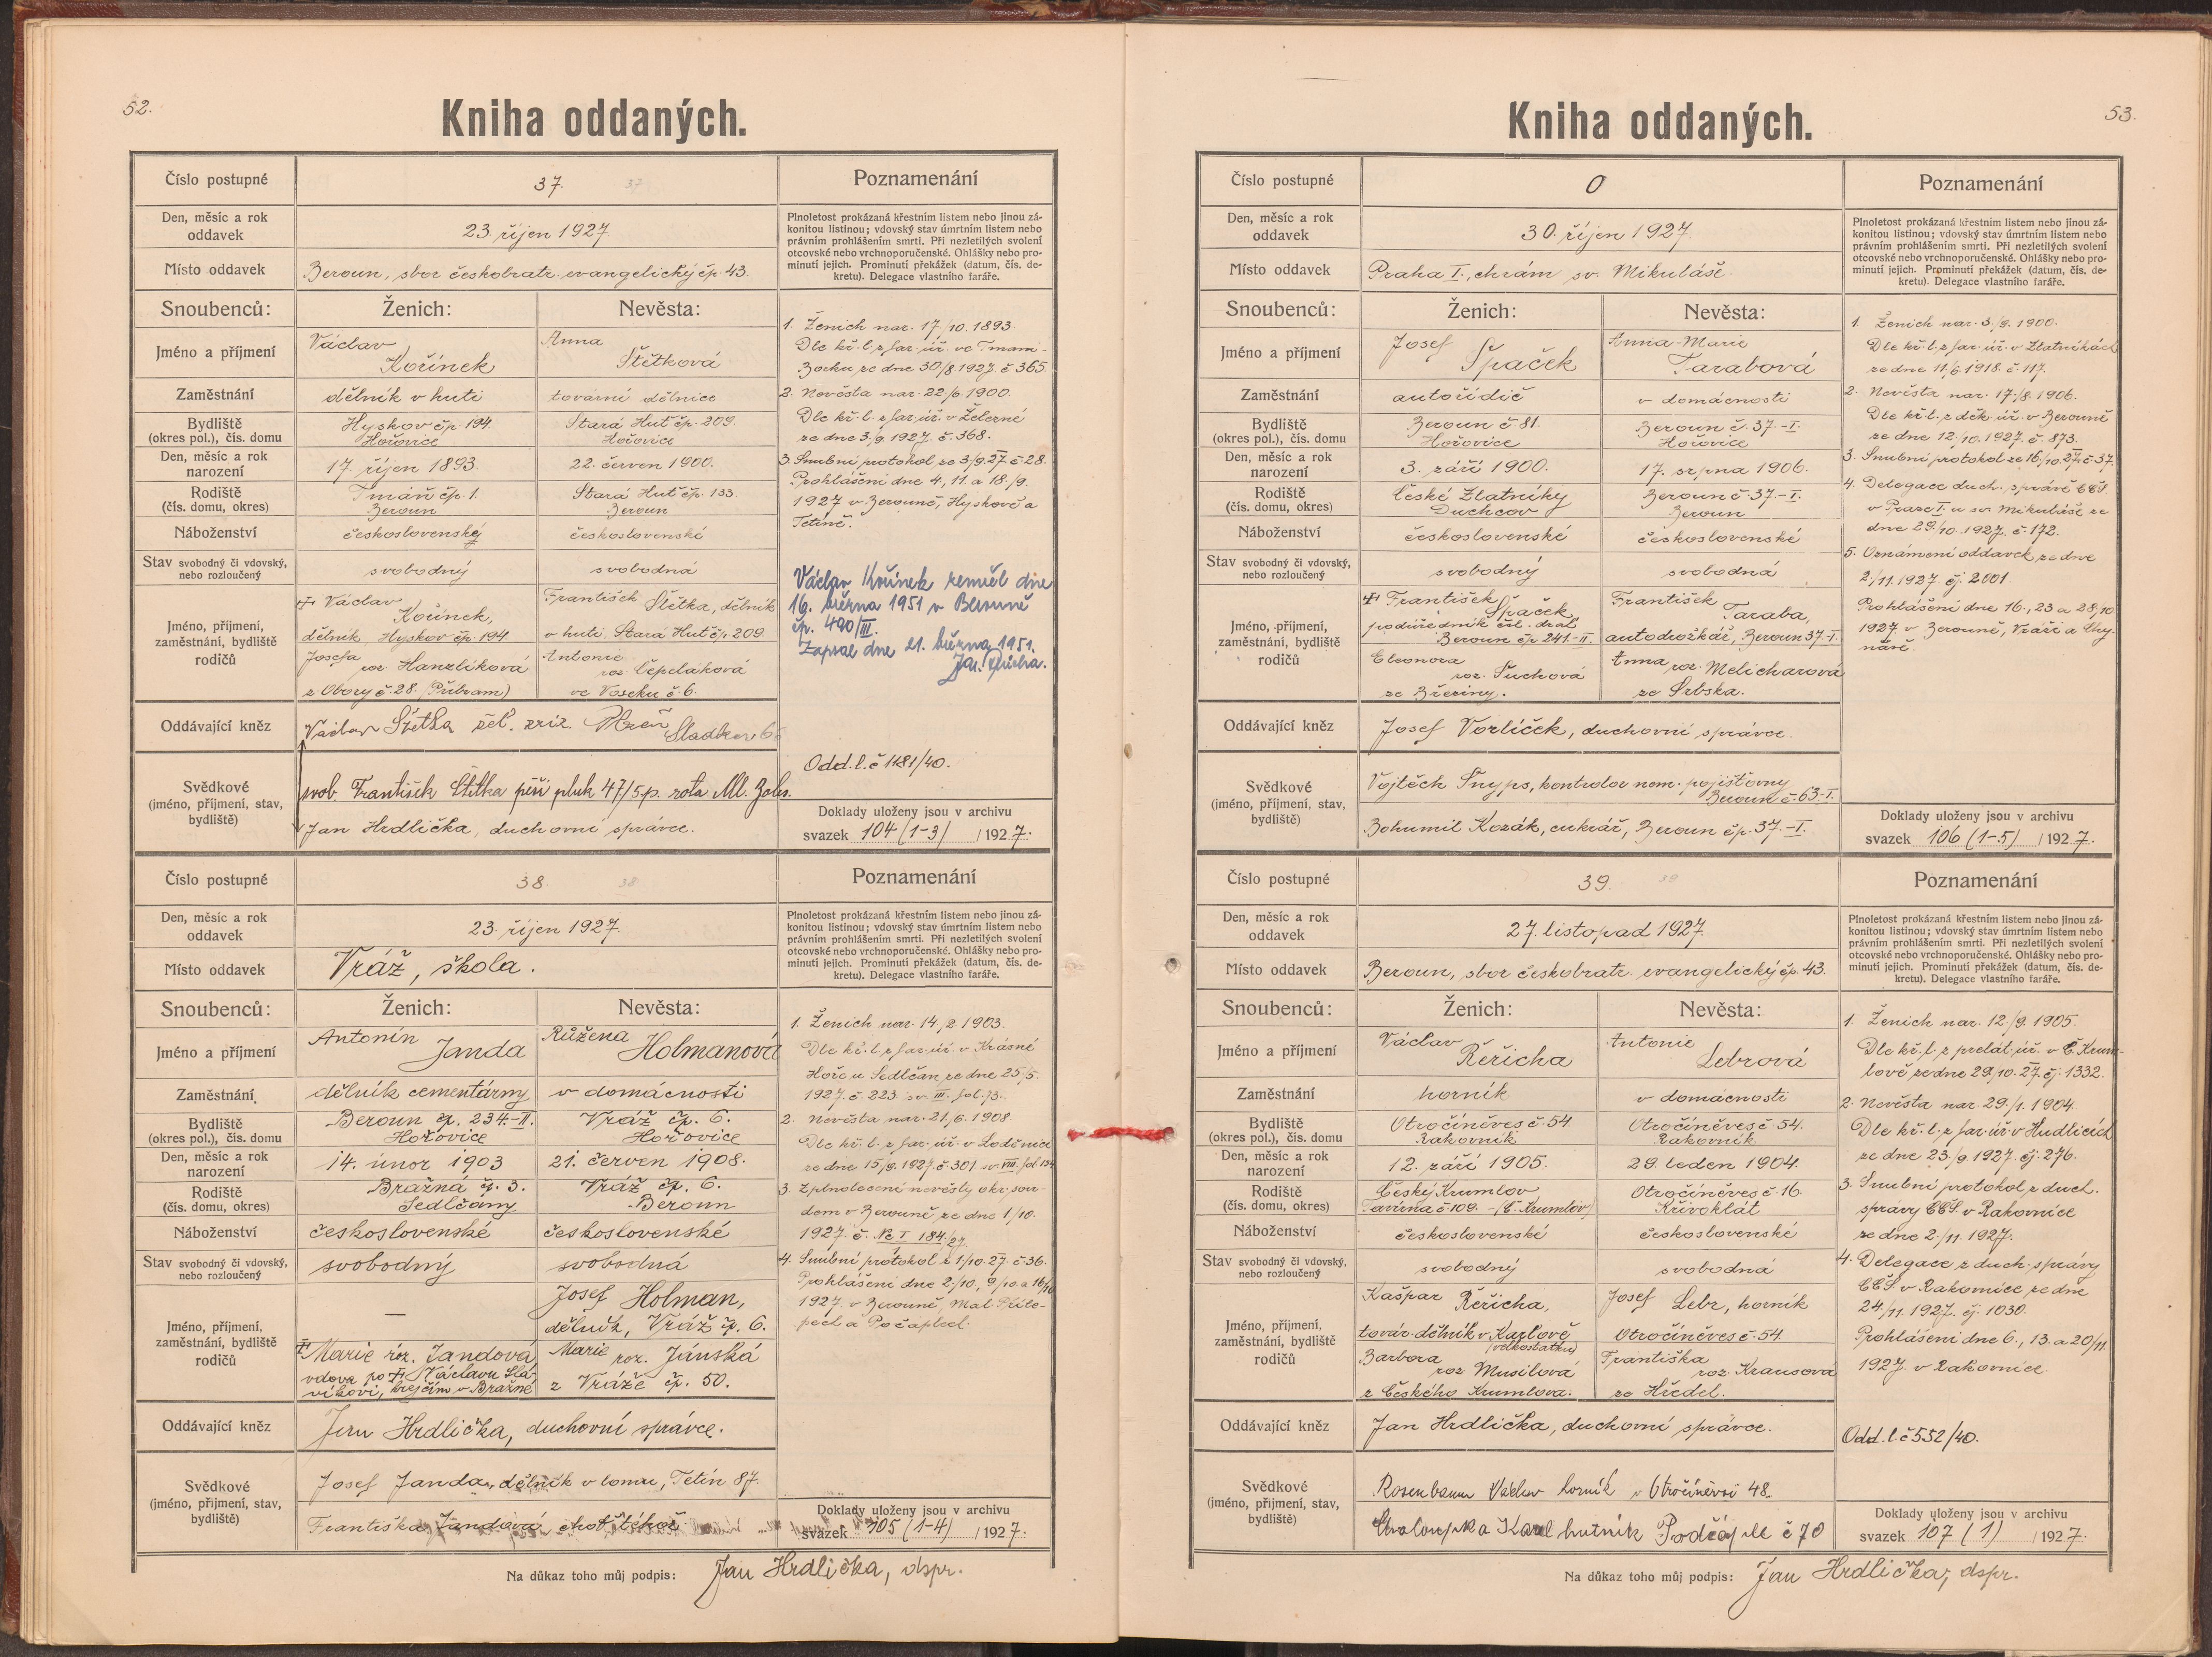 52.
Kniha oddaných.
Číslo postupné
37.
37
Poznamenání
Den, měsíc a rok
oddavek
23. říjen 1927.
Plnoletost prokázaná křestním listem nebo jinou zá-
konitou listinou; vdovský stav úmrtním listem nebo
právním prohlášením smrti. Při nezletilých svolení
otcovské nebo vrchnoporučenské. Ohlášky nebo pro-
minutí jejich. Prominutí překážek (datum, čís. de-
kretu). Delegace vlastního faráře.
Místo oddavek
Beroun, sbor českobratr. evangelický čp. 43.
Snoubenců:
Ženich:
Nevěsta:
Jméno a příjmení
Václav
Kořínek
Anna
Štětková
Zaměstnání
dělník v huti
tovární dělnice
Bydliště
(okres pol.), čís. domu
Hyskov čp. 194.
Hořovice
Stará Huť čp. 209.
Hořovice
Den, měsíc a rok
narození
17. říjen 1893.
22. červen 1900.
Rodiště
(čís. domu, okres)
Tmáň čp. 1.
Beroun
Stará Huť čp. 133.
Beroun
Náboženství
československý
československé
Stav svobodný či vdovský,
nebo rozloučený
svobodný
svobodná
Jméno, příjmení,
zaměstnání, bydliště
rodičů
Václav
Kořínek,
dělník, Hyskov čp. 194
Josefa
roz. Hanzlíková
z Obory č. 28. (Příbram)
František Štětka, dělník
v huti, Stará Huť čp. 209.
Antonie
roz. Čepeláková
ve Voseku č. 6.
1. Ženich nar. 17/10. 1893.
Dle kř. l. z far. úř. ve Tmani-
ze dne 30/8. 1927. č 365.
2. Nevěsta nar. 22/6. 1900.
Dle kř. l. z far. úř. v Železné
ze dne 3./9. 1927. č. 368.
3. Snubní protokol ze 3/9. 27. č. 28.
Prohlášení dne 4, 11. a 18./9.
1927 v Berouně, Hyskově a
Tetíně.
Václav Kořínek zemřel dne
16. března 1951 v Berouně
čp. 490/III.
Zapsal dne 21. března 1951.
Oddávající kněz
Václav Štětka
Svědkové
(jméno, příjmení, stav,
bydliště)
svob. František Štětka pěší pluk 47/5.p. rota Ml. Boles.
Jan Hrdlička, duchovní správce.
Odd. l. č 1181/40.
Doklady uloženy jsou v archivu
svazek 104 (1-3) / 1927.
Číslo postupné
38.
38
Poznamenání
Den, měsíc a rok
oddavek
23. říjen 1927.
Plnoletost prokázaná křestním listem nebo jinou zá-
konitou listinou; vdovský stav úmrtním listem nebo
právním prohlášením smrti. Při nezletilých svolení
otcovské nebo vrchnoporučenské. Ohlášky nebo pro-
minutí jejich. Prominutí překážek (datum, čís. de-
kretu). Delegace vlastního faráře.
Místo oddavek
Vráž, škola.
Snoubenců:
Ženich:
Nevěsta:
Jméno a příjmení
Antonín
Janda
Růžena
Holmanová
Zaměstnání
dělník cementárny
v domácnosti
Bydliště
(okres pol.), čís. domu
Beroun čp. 234.-II.
Hořovice
Vráž čp. 6.
Hořovice
Den, měsíc a rok
narození
14. únor 1903
21. červen 1908.
Rodiště
(čís. domu, okres)
Bražná č. 3.
Sedlčany
Vráž čp. 6.
Beroun
Náboženství
československé
československé
Stav svobodný či vdovský,
nebo rozloučený
svobodný
svobodná
Jméno, příjmení,
zaměstnání, bydliště
rodičů
—
Marie roz. Jandová
vdova po Václavu Sla-
víkovi, krejčím v Bražné
Josef Holman,
dělník, Vráž čp. 6.
Marie
roz. Jánská
z Vráže čp. 50.
1. Ženich nar. 14./2 1903.
Dle kř. l. z far. úř. v Krásné
Hoře u Sedlčan, ze dne 25/5.
1927. č. 223 sv. III. fol. 73.
2. Nevěsta nar. 21./6. 1908
Dle kř. l. z far. úř. v Loděnice
ze dne 15./9. 1927. č. 301. sv. VIII. fol. 134
3. Zplnoletnění nevěsty okr. sou-
dem v Berouně, ze dne 1/10.
1927. č. Nc I 184/27.
4. Snubní protokol z 1/10. 27. č. 36.
Prohlášení dne 2/10, 9/10 a 16/10
1927. v Berouně, Mal. Příle-
pech a Počaplech.
Oddávající kněz
Jan Hrdlička, duchovní správce.
Svědkové
(jméno, příjmení, stav,
bydliště)
Josef Janda, dělník v lomu, Tetín 87.
Františka Jandová
Doklady uloženy jsou v archivu
svazek 105 (1-4) / 1927.
Na důkaz toho můj podpis: Jan Hrdlička, dspr.
53.
Kniha oddaných.
Číslo postupné
0
Poznamenání
Den, měsíc a rok
oddavek
30. říjen 1927.
Plnoletost prokázaná křestním listem nebo jinou zá-
konitou listinou; vdovský stav úmrtním listem nebo
právním prohlášením smrti. Při nezletilých svolení
otcovské nebo vrchnoporučenské. Ohlášky nebo pro-
minutí jejich. Prominutí překážek (datum, čís. de-
kretu). Delegace vlastního faráře.
Místo oddavek
Praha I., chrám sv. Mikuláše.
Snoubenců:
Ženich:
Nevěsta:
Jméno a příjmení
Josef
Špaček
Anna-Marie
Tarabová
Zaměstnání
autořidič
v domácnosti
Bydliště
(okres pol.), čís. domu
Beroun č. 81.
Hořovice
Beroun č. 37.-I.
Hořovice
Den, měsíc a rok
narození
3. září 1900.
17. srpna 1906.
Rodiště
(čís. domu, okres)
České Zlatníky
Duchcov
Beroun č. 37.-I.
Beroun
Náboženství
československé
československé
Stav svobodný či vdovský,
nebo rozloučený
svobodný
svobodná
Jméno, příjmení,
zaměstnání, bydliště
rodičů
František
Špaček,
podúředník čsl. drah
Beroun čp. 241.-II.
Eleonora
roz. Suchová
ze Březiny.
František
Taraba,
autodrožkář, Beroun 37-I.
Anna roz. Melicharová
ze Srbska.
1. Ženich nar. 3./9. 1900.
Dle kř. l. z far. úř. v Zlatníkách
ze dne 11./6. 1918. č. 117.
2. Nevěsta nar. 17./8. 1906.
Dle kř. l. z děk. úř. v Berouně
ze dne 12./10. 1927. č. 873.
3. Snubní protokol ze 16./10. 27. č. 37.
4. Delegace duch. správě CČS.
v Praze I. u sv. Mikuláše ze
dne 29./10. 1927. č. 172.
5. Oznámení oddavek ze dne
2./11. 1927. čj. 2001.
Prohlášení dne 16., 23 a 28./10
1927. v Berouně, Vráži a Chy-
návě.
Oddávající kněz
Josef Vorlíček, duchovní správce.
Svědkové
(jméno, příjmení, stav,
bydliště)
Vojtěch Šnyps, kontrolor nem. pojišťovny
Beroun č. 63.-I.
Bohumil Kozák, cukrář, Beroun čp. 37.-I.
Doklady uloženy jsou v archivu
svazek 106 (1-5) / 1927.
Číslo postupné
39.
39
Poznamenání
Den, měsíc a rok
oddavek
27. listopad 1927.
Plnoletost prokázaná křestním listem nebo jinou zá-
konitou listinou; vdovský stav úmrtním listem nebo
právním prohlášením smrti. Při nezletilých svolení
otcovské nebo vrchnoporučenské. Ohlášky nebo pro-
minutí jejich. Prominutí překážek (datum, čís. de-
kretu). Delegace vlastního faráře.
Místo oddavek
Beroun, sbor českobratr. evangelický čp. 43.
Snoubenců:
Ženich:
Nevěsta:
Jméno a příjmení
Václav
Řeřicha
Antonie
Lebrová
Zaměstnání
horník
v domácnosti
Bydliště
(okres pol.), čís. domu
Otročiněves č. 54.
Rakovník
Otročiněves č. 54.
Rakovník
Den, měsíc a rok
narození
12. září 1905.
29. leden 1904.
Rodiště
(čís. domu, okres)
Český Krumlov
č. 109. - (Č. Krumlov)
Otročiněves č. 16.
Křivoklát
Náboženství
československé
československé
Stav svobodný či vdovský,
nebo rozloučený
svobodný
svobodná
Jméno, příjmení,
zaměstnání, bydliště
rodičů
Kašpar Řeřicha,
továr. dělník v Karlově
(velkostatku)
Barbora
roz. Musilová
z Českého Krumlova.
Josef Lebr, horník
Otročiněves č. 54.
Františka
roz. Krausová
ze Hředel.
1. Ženich nar. 12./9. 1905.
Dle kř. l. z prelát. úř. v Č. Krum-
lově ze dne 29./10. 27. čj. 1332.
2. Nevěsta nar. 29./1. 1904.
Dle kř. l. z far. úř. v Hudlicích
ze dne 23./9. 1927. čj. 276.
3. Snubní protokol z duch.
správy CČS. v Rakovníce
ze dne 2./11. 1927.
4. Delegace z duch. správy
CČS v Rakovníce ze dne
24./11 1927. čj. 1030.
Prohlášení dne 6., 13. a 20/11
1927. v Rakovníce.
Oddávající kněz
Jan Hrdlička, duchovní správce.
Odd. l. č 552/40.
Svědkové
(jméno, příjmení, stav,
bydliště)
Rosenbaum Václav horník v Otročiněvsi 48.
Karel hutník č 70
Doklady uloženy jsou v archivu
svazek 107 (1) / 1927.
Na důkaz toho můj podpis: Jan Hrdlička, dspr.